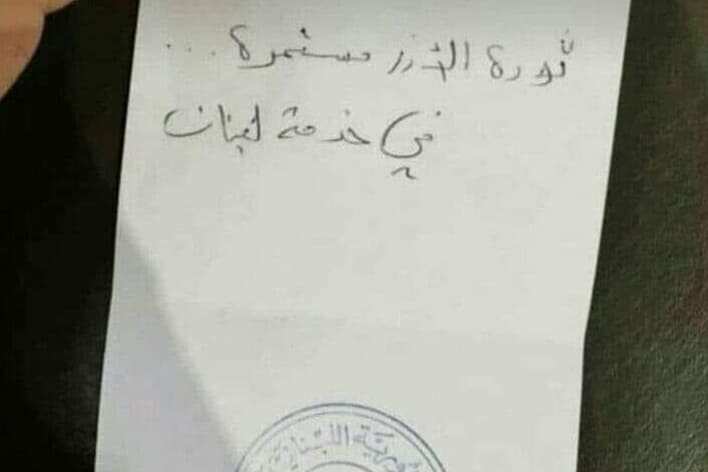 ثورة الأرز مستمرة...
في خدمة لبنان
الجمهورية اللبنانية